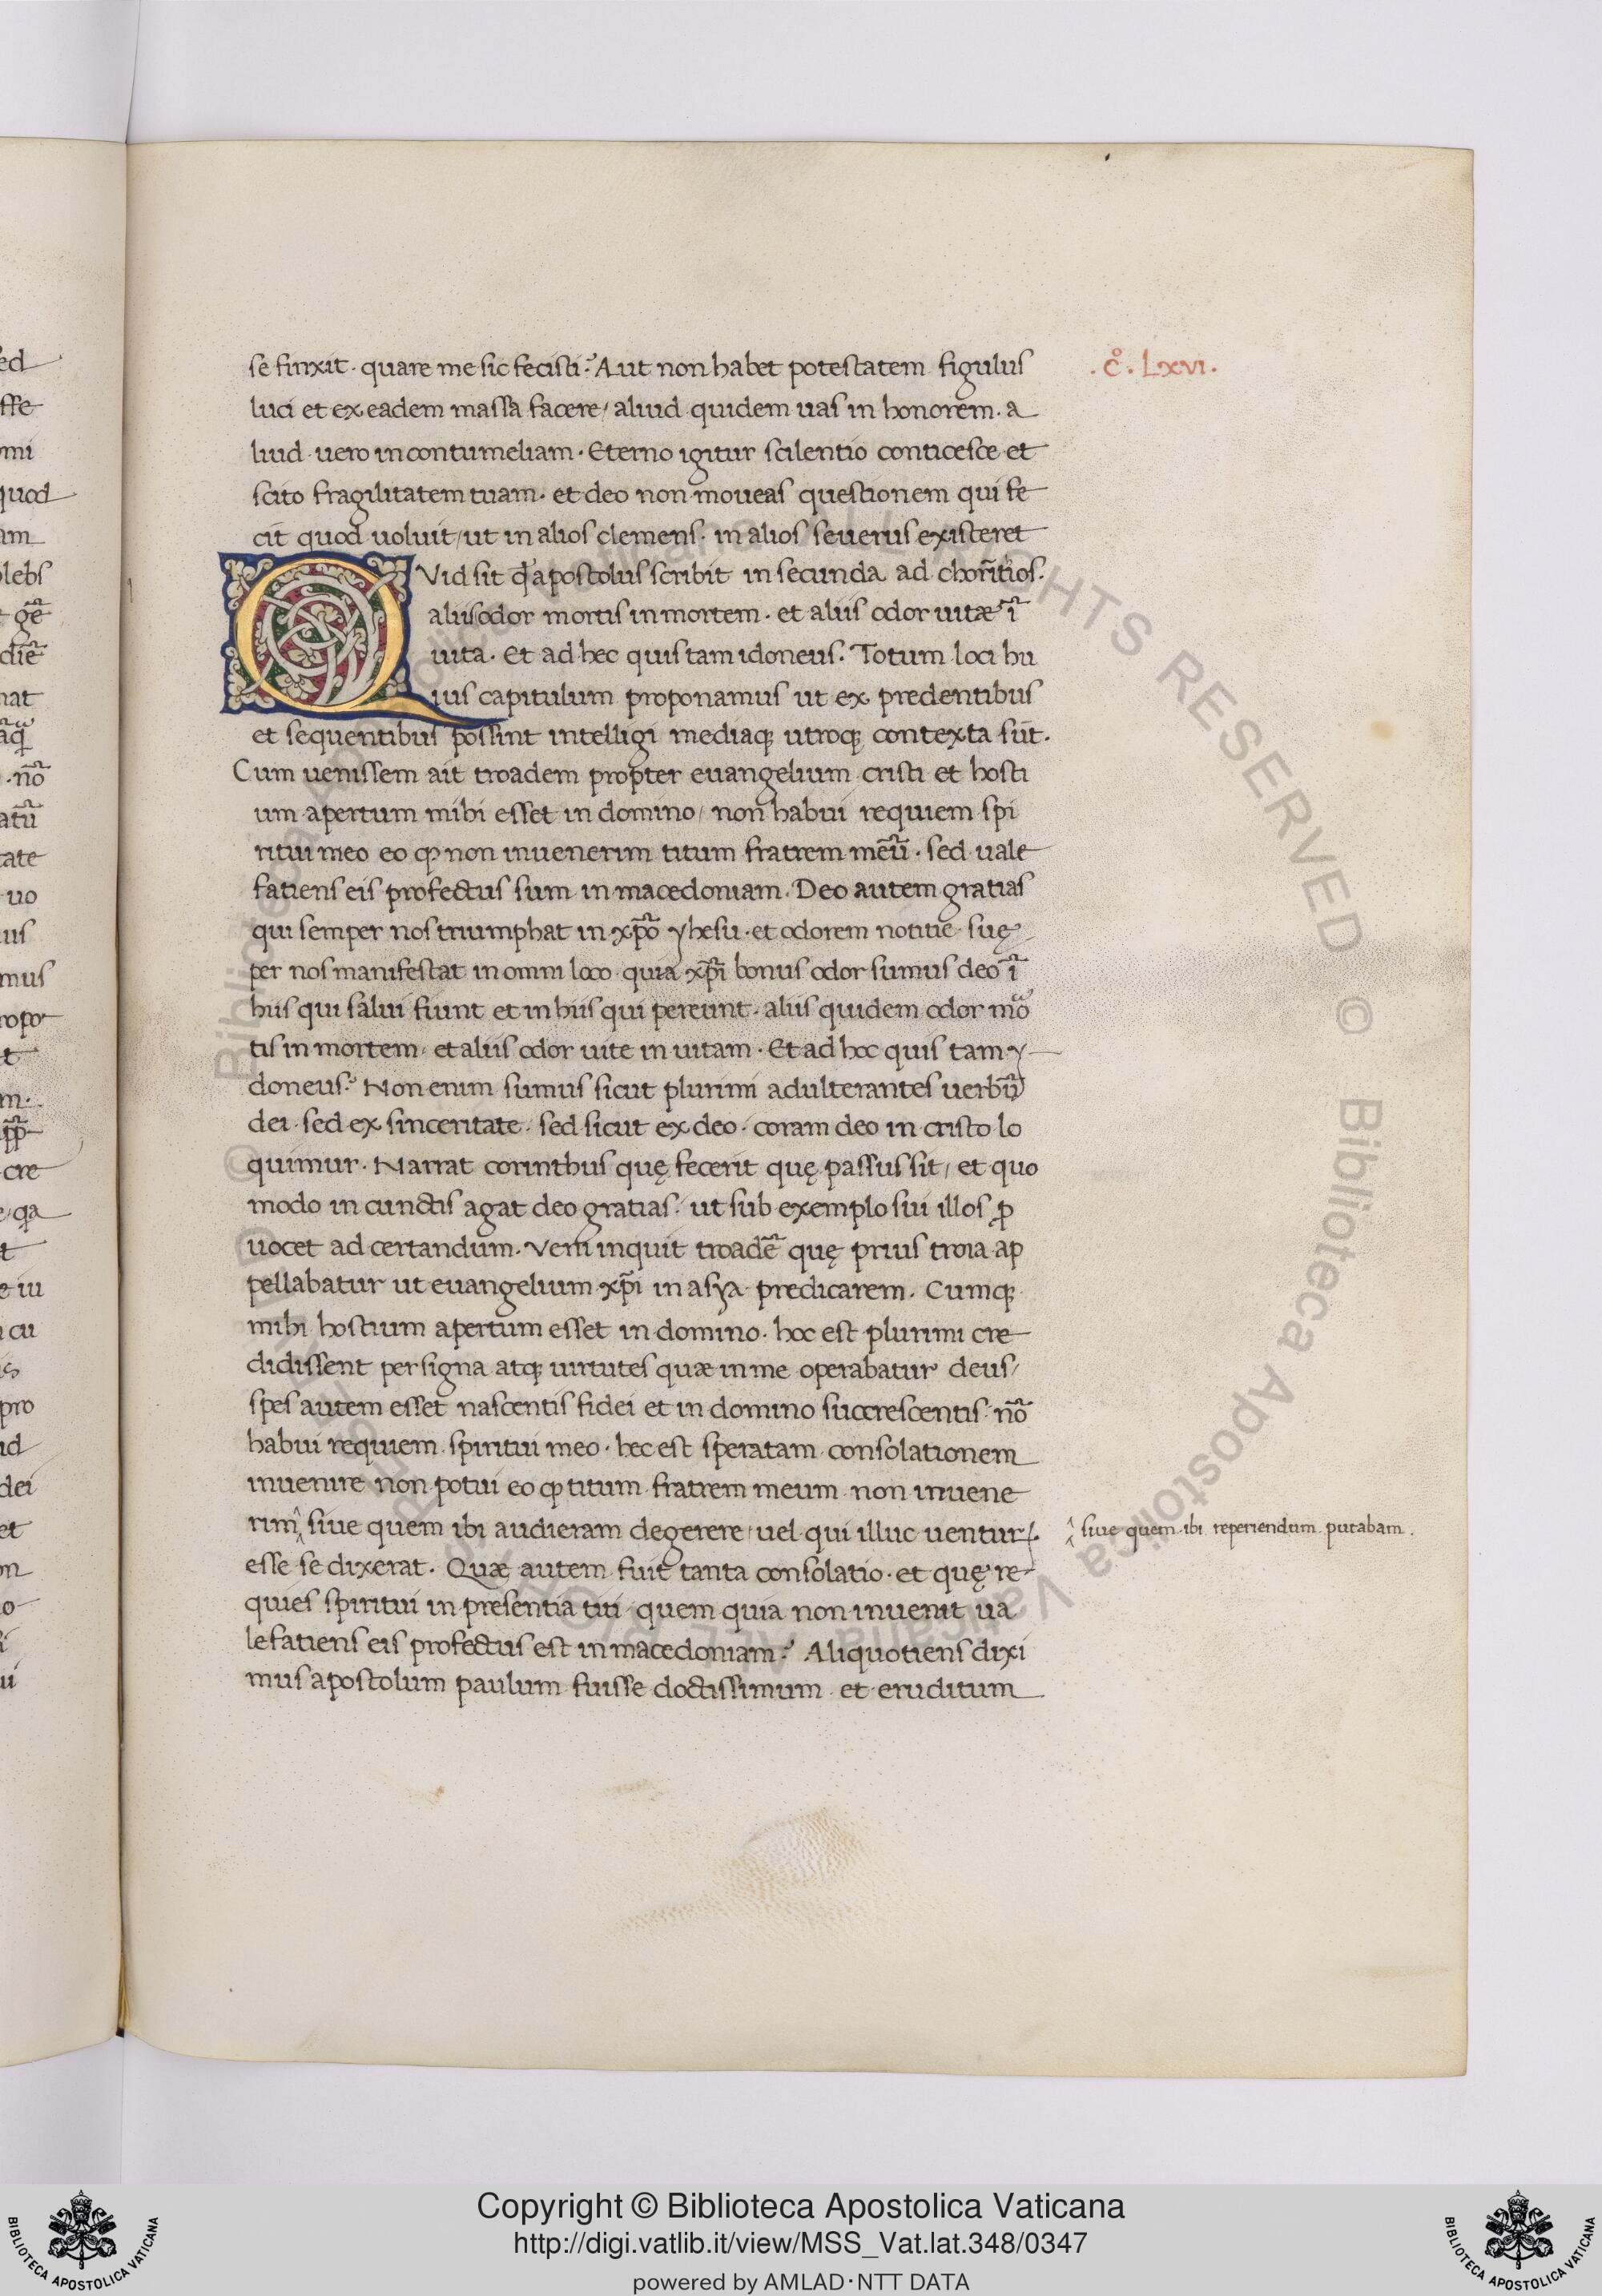 se finxit · quare me sic fecisti? Aut non habet potestatem figulus
luci et ex eadem massa facere / aliud quidem uas in honorem · a
liud uero in contumeliam · Eterno igitur scilentio conticesce et
scito fragilitatem tuam · et deo non moueas questionem qui fe
cit quod uoluit / ut in alios clemens · in alios seuerus existeret
QVid sit qđ apostolus scribit in secunda ad chorñtios ·
aliis odor mortis in mortem · et aliis odor uitæ ī
uita · Et ad hec quis tam idoneus · Totum loci hu
ius capitulum proponamus ut ex predentibus
et sequentibus possint intelligi mediaq; utroq; contexta sūt ·
Cum uenissem ait troadem propter euangelium cristi et hosti
um apertum mihi esset in domino / non habui requiem spi
ritui meo eo ꝙ non inuenerim titum fratrem meū · sed uale
fatiens eis profectus sum in macedoniam · Deo autem gratias
qui semper nos triumphat in xp̄o yhesu · et odorem notitie suę
per nos manifestat in omni loco quia xp̄i bonus odor sumus deo ī
hiis qui salui fiunt et in hiis qui pereunt · aliis quidem odor mo
tis in mortem · et aliis odor uite in uitam · Et ad hoc quis tam y
doneus? Non enim sumus sicut plurimi adulterantes uerbū
dei · sed ex sinceritate · sed sicut ex deo · coram deo in cristo lo
quimur · Narrat corinthus quę fecerit quę passus sit / et quo
modo in cunctis agat deo gratias · ut sub exemplo sui illos ꝓ
uocet ad certandum · Veni inquit troadē quę prius troia ap
pellabatur ut euangelium xp̄i in asya predicarem · Cumq;
mihi hostium apertum esset in domino · hoc est plurimi cre
didissent per signa atq; uirtutes quæ in me operabatur deus /
spes autem esset nascentis fidei et in domino succrescentis · nō
habui requiem spiritui meo · hec est speratam consolationem
inuenire non potui eo ꝙ titum fratrem meum non inuene
rim ^ siue quem ibi audieram degerere / uel qui illuc uentur
esse se dixerat · Quæ autem fuit tanta consolatio · et quę re
quies spiritui in presentia titi quem quia non inuenit ua
lefatiens eis profectus est in macedoniam? Aliquotiens dixi
mus apostolum paulum fuisse doctissimum et eruditum
· c̊ · Lxvi ·
^ siue quem ibi reperiendum putabam ·
Copyright © Biblioteca Apostolica Vaticana
http://digi.vatlib.it/view/MSS_Vat.lat.348/0347
powered by AMLAD·NTT DATA
BIBLIOTECA APOSTOLICA VATICANA
BIBLIOTECA APOSTOLICA VATICANA